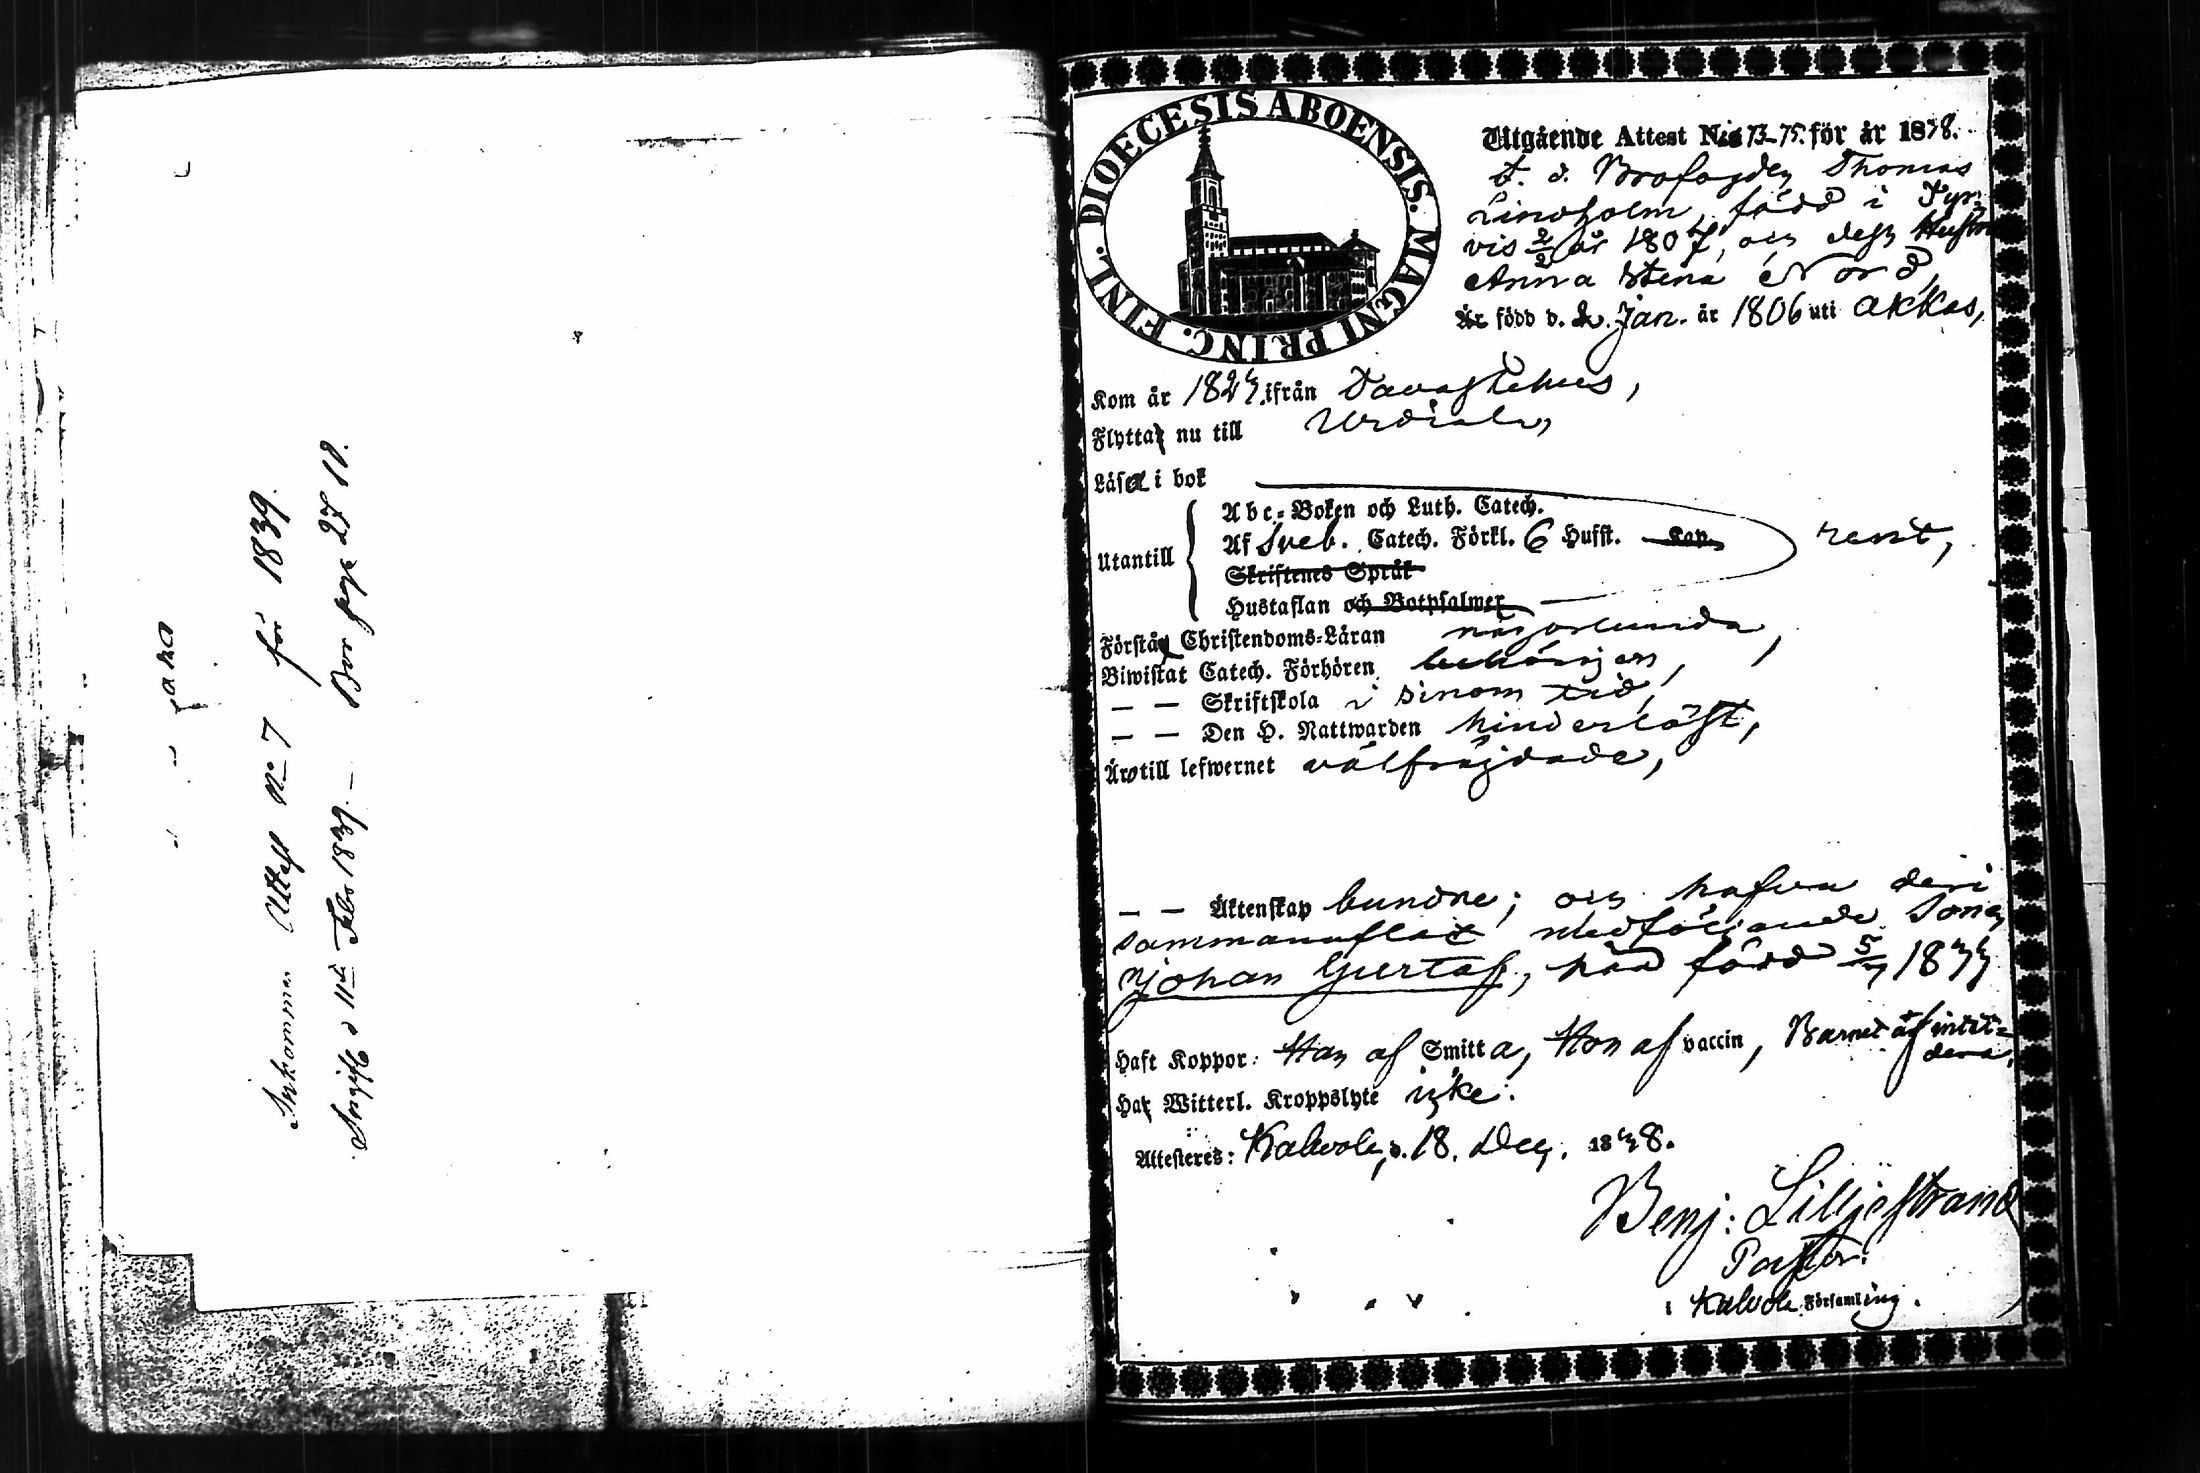 Inkommen Attest No 7 för 1839.
Ingifv. d. 11te Febr 1839. – Bor pag. 27 18.
DIOECESIS ABOENSIS. MAGNI PRINC. FINL.
Utgående Attest No 73-75. för år 1838.
f. d. Brofogden Thomas
Lindholm, född i Tyr-
vis 2/2 år 1807, och dess Hustru
Anna Stina Nord,
Är född d. 2. Jan. år 1806 uti Akkas,
Kom år 1827. ifrån Tavastehus,
Flytta nu till Urdiala,
Läsa i bok
Utantill
Abc-Boken och Luth. Catech.
Af Sveb. Catech. Förkl. 6 Hufst. Kap. rent,
Skriftenes Språk
Hustaflan och Botpsalmer
Förstå Christendoms-Läran någorlunda,
Biwistat Catech. Förhören behörigen,
— — Skriftskola i sinom tid,
— — Den H. Nattwarden hinderlöst,
Äro till lefwernet välfräjdade,
— — Äktenskap bundne; och hafva deri
sammanaflat medföljande Sonen
Johan Gustaf, som född 5/7 1833
Haft Koppor: Han af Smitta, Hon af vaccin, Barnet äf
Har Witterl. Kroppslyte icke.
Attesteres: Kalvola, d. 18. Dec. 1838.
Benj: Lilljestrand
Pastor.
i Kalvola Församling.